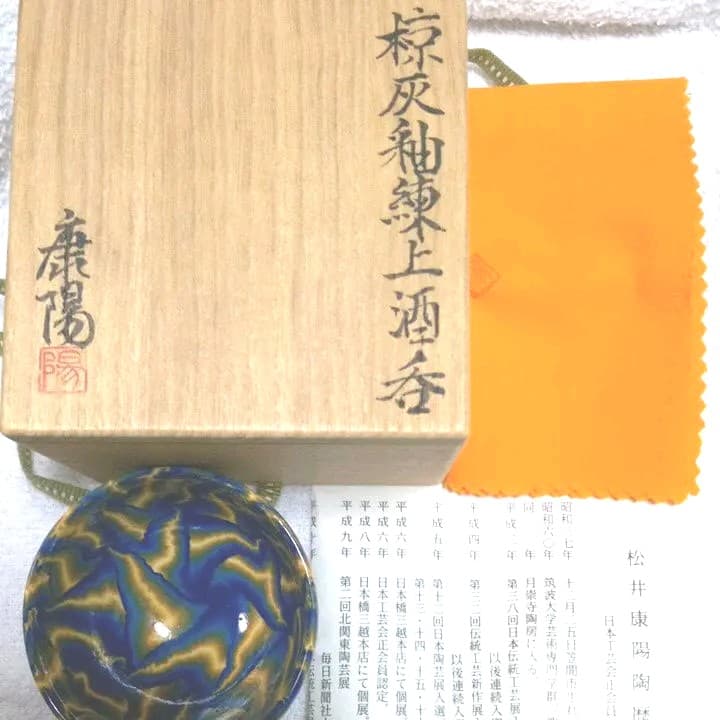 椋灰釉練上酒呑
康陽
陽
松井康陽陶歴
日本工芸会正会員
昭和
七年
十二月二五日笠間市
昭和六〇年
筑波大学芸術専門学群
同
年
月崇寺陶房に入る
平成
第三八回日本伝統工芸展
以後連続入
平成四年
第三二回伝統工芸新作展
以後連続入
平成五年
第十二回日本陶芸展入選
第十三・十四・十五・十
平成六年
日本橋三越本店にて個展。
平成六年
日本工芸会正会員認定。
平成八年
日本橋三越本店にて個展。
平成九年
第二回北関東陶芸展
毎日新聞社
平成十年